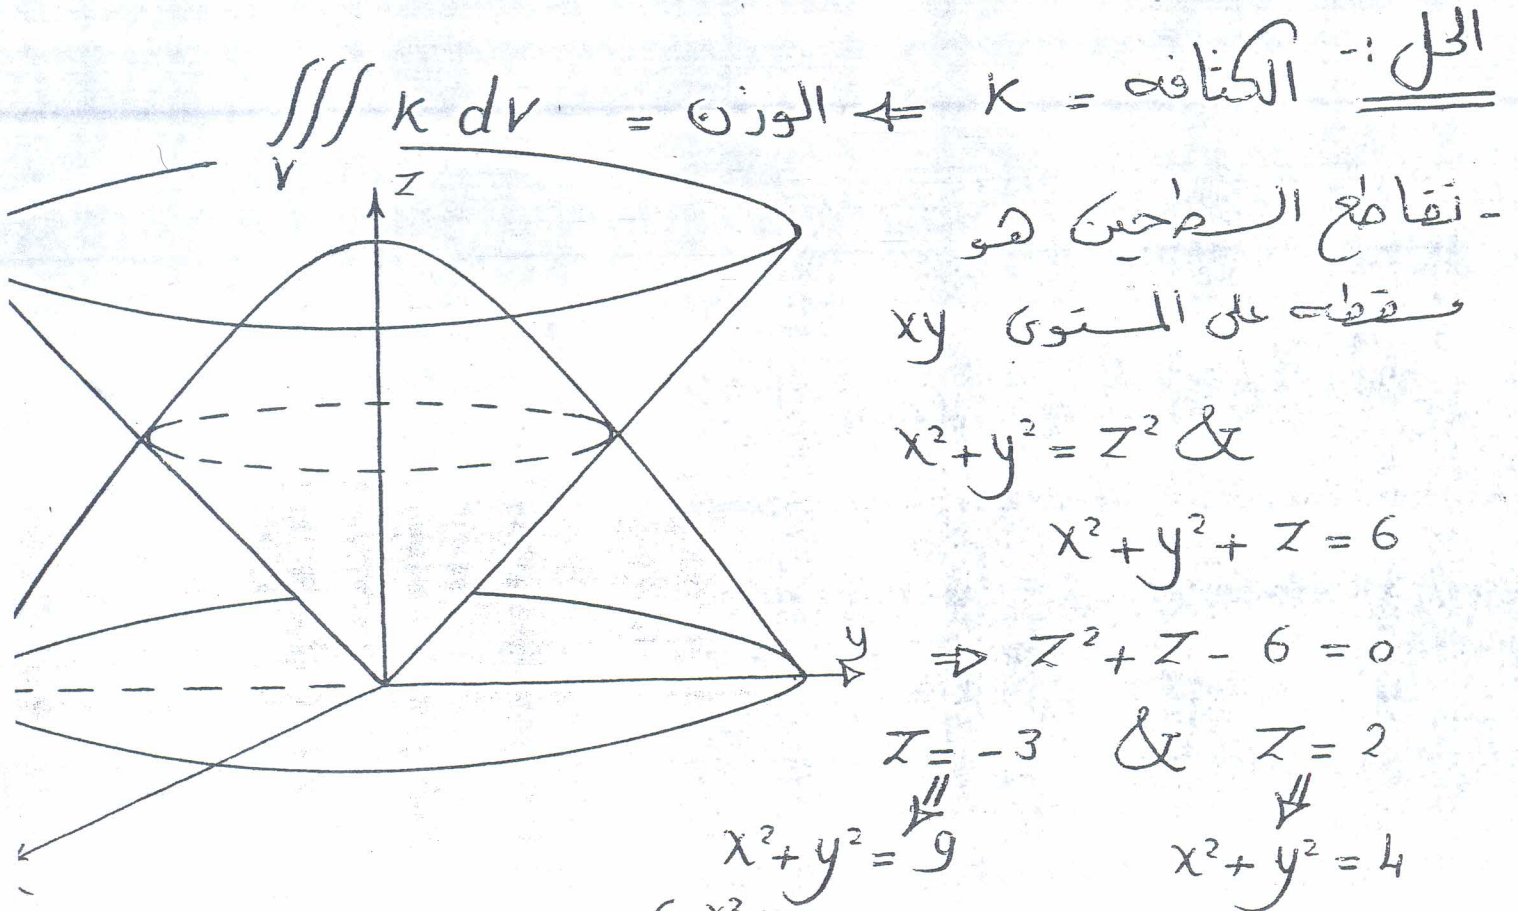 الحل :-
الكثافه = K ⇐ الوزن = ∭ K dv
V
- تقاطع السطحين هو
مسقطه على المستوى xy
x² + y² = z² &
x² + y² + z = 6
⇒ z² + z - 6 = 0
z = -3 & z = 2
x² + y² = 9 x² + y² = 4
z
y